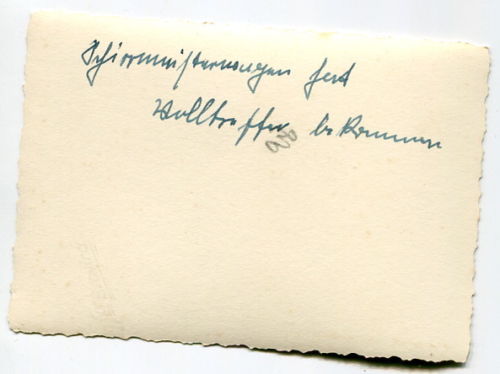 Schirrmeisterwagen hat
Volltreffer bekommen